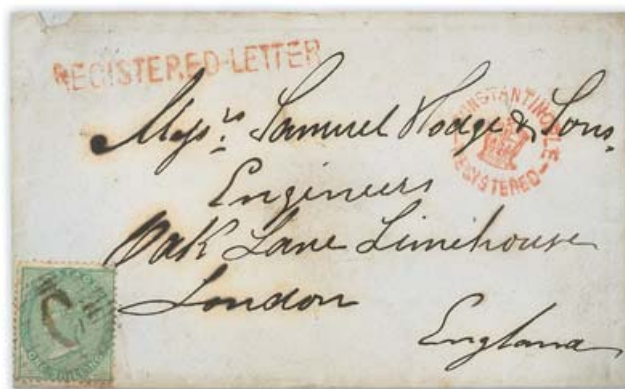 REGISTERED-LETTER
CONSTANTINOPLE
REGISTERED
Messrs. Samuel Hodge & Sons.
Engineers
Oak Lane Limehouse
London
England
C